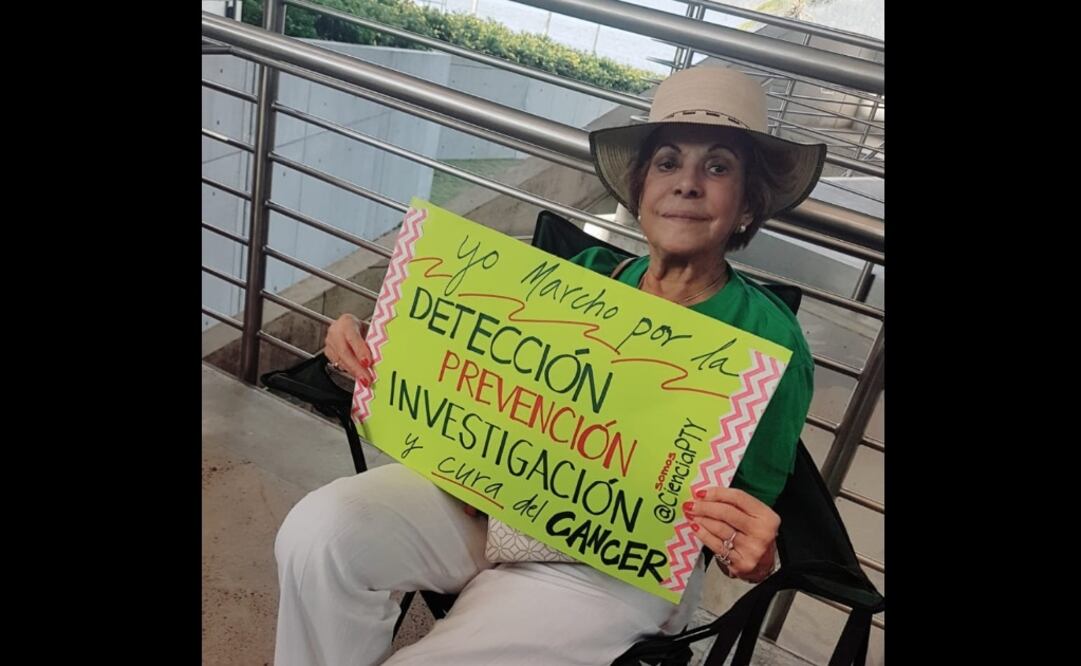 Yo Marcho por la
DETECCIÓN
PREVENCIÓN
INVESTIGACIÓN
y cura del CANCER
somos
@CienciaPTY